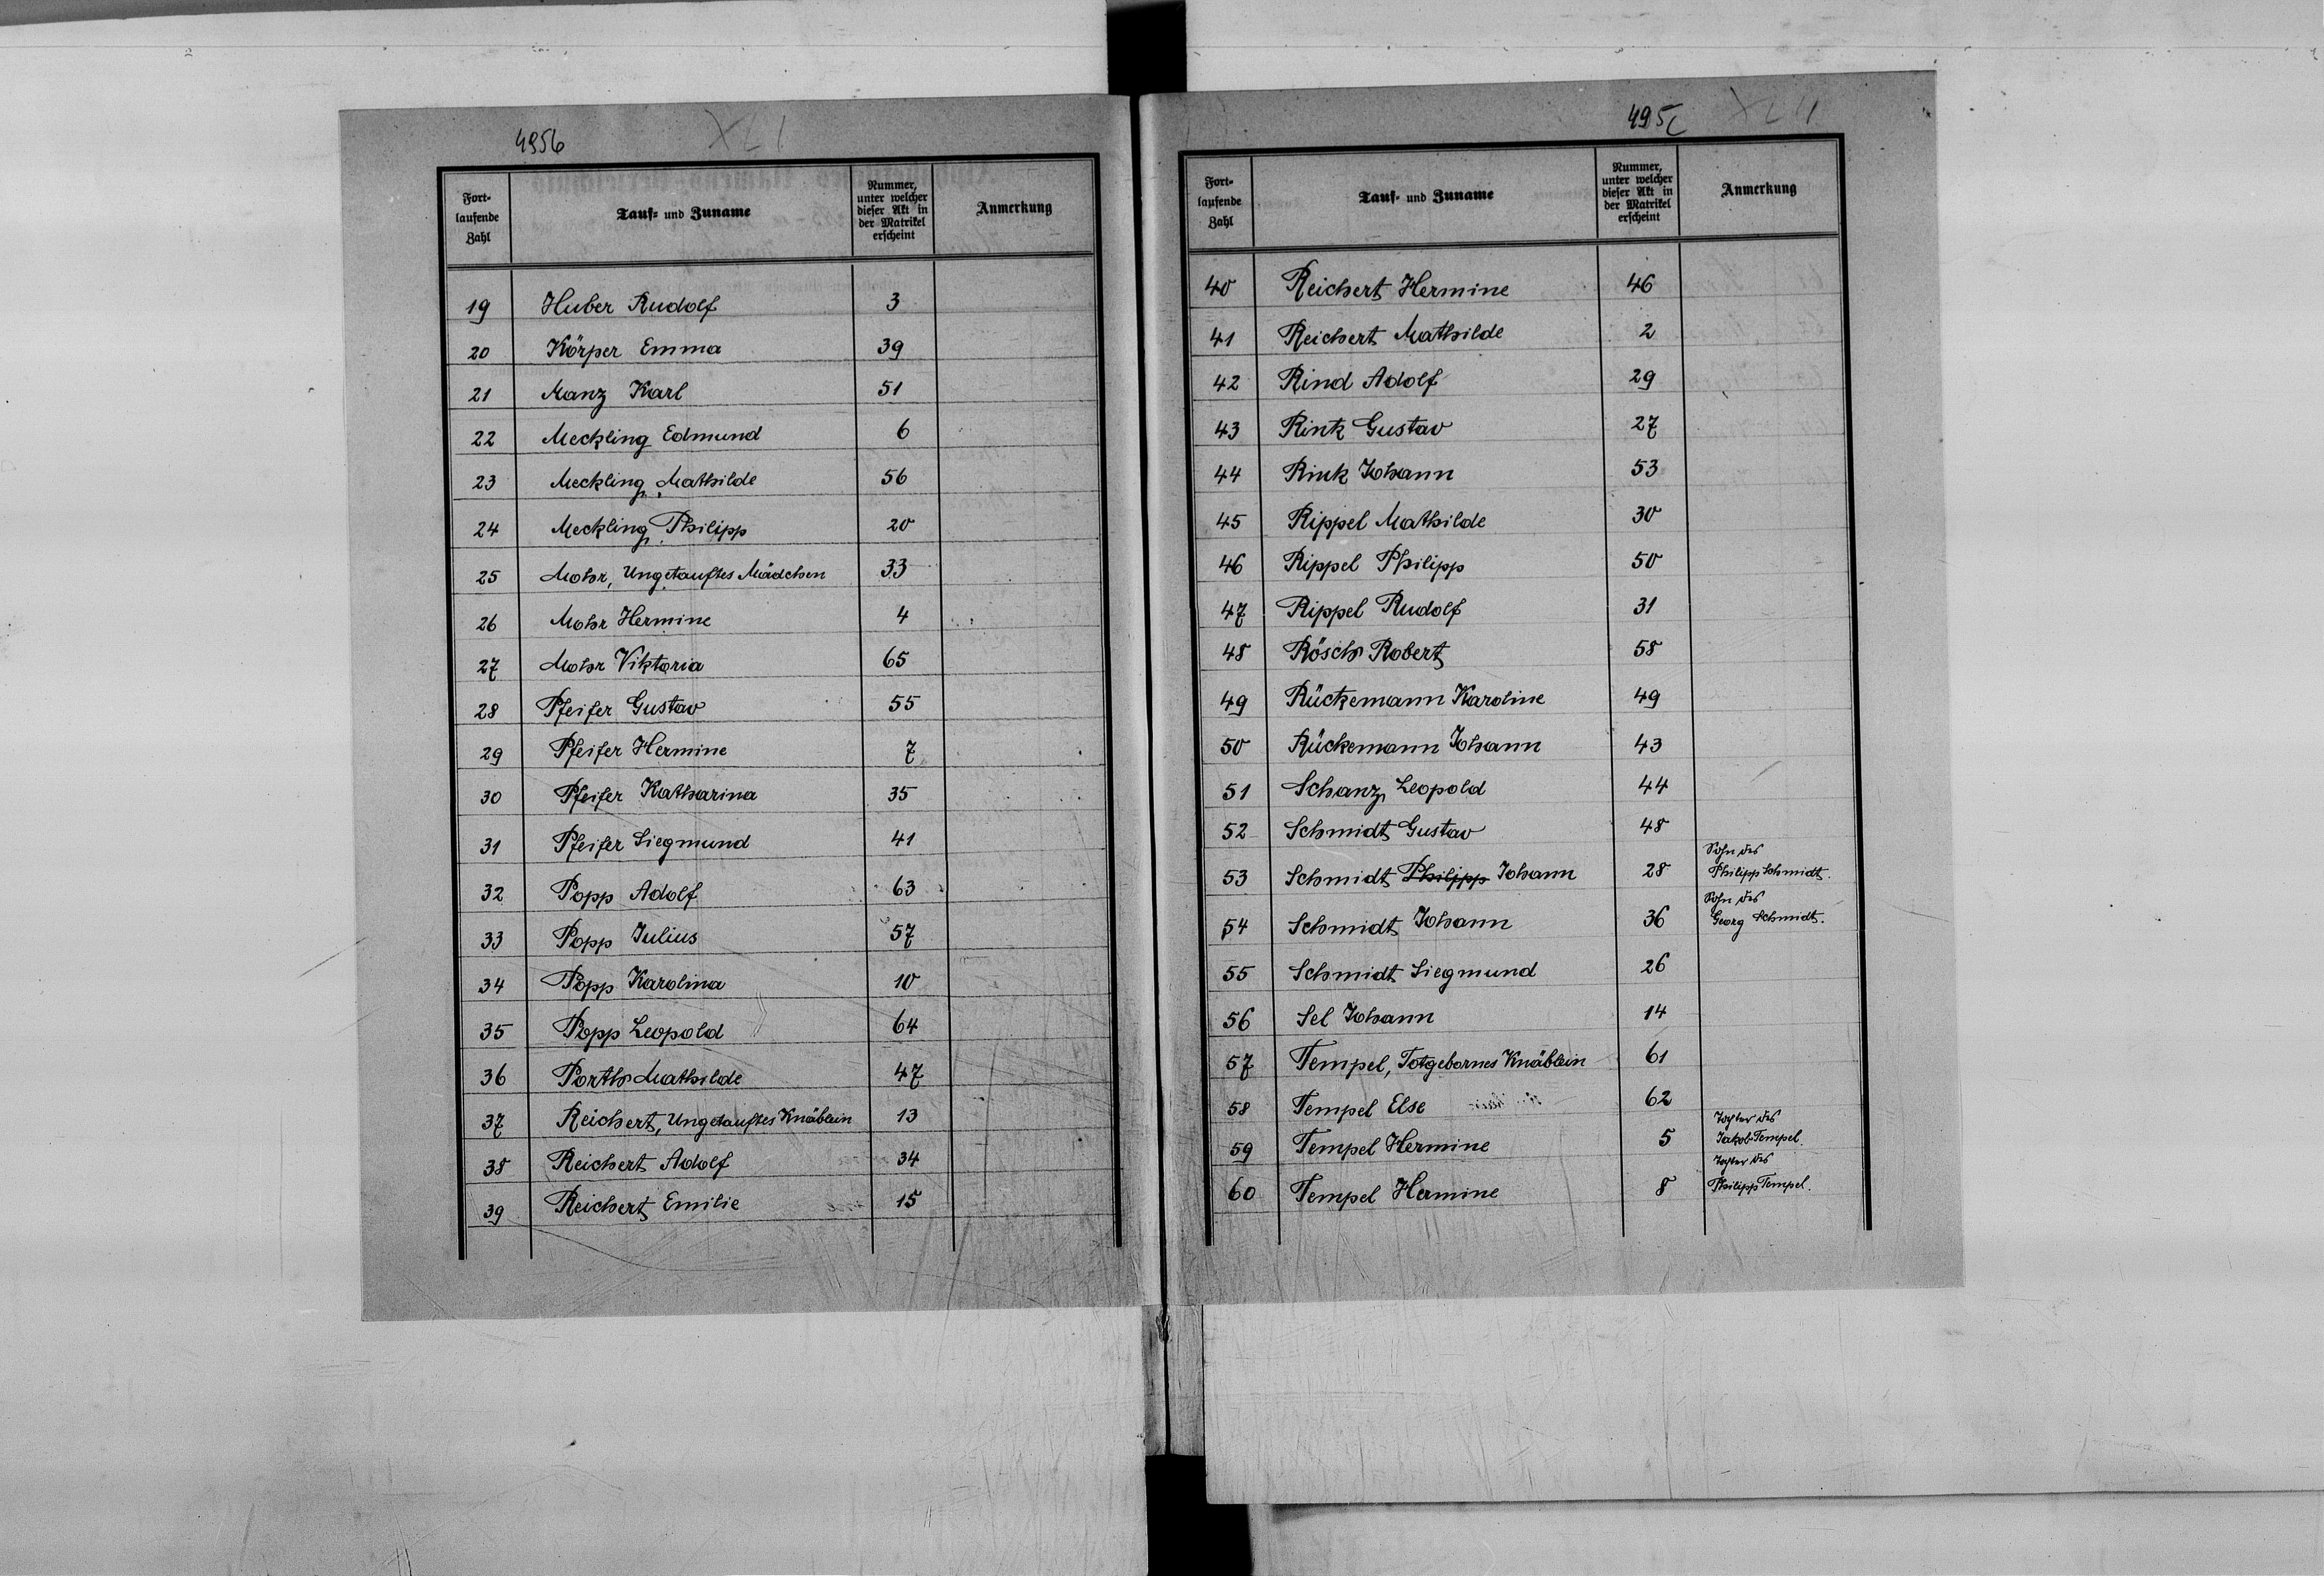 4956
XLI
Fort-
laufende
Zahl
Tauf- und Zuname
Nummer,
unter welcher
dieser Akt in
der Matrikel
erscheint
Anmerkung
19 Huber Rudolf 3
20 Körper Emma 39
21 Manz Karl 51
22 Meckling Edmund 6
23 Meckling Mathilde 56
24 Meckling Philipp 20
25 Mohr, Ungetauftes Mädchen 33
26 Mohr Hermine 4
27 Mohr Viktoria 65
28 Pfeifer Gustav 55
29 Pfeifer Hermine 7
30 Pfeifer Katharina 35
31 Pfeifer Siegmund 41
32 Popp Adolf 63
33 Popp Julius 57
34 Popp Karolina 10
35 Popp Leopold 64
36 Porth Mathilde 47
37 Reichert, Ungetauftes Knäblein 13
38 Reichert Adolf 34
39 Reichert Emilie 15
495c
XLII
Fort-
laufende
Zahl
Tauf- und Zuname
Nummer,
unter welcher
dieser Akt in
der Matrikel
erscheint
Anmerkung
40 Reichert Hermine 46
41 Reichert Mathilde 2
42 Rind Adolf 29
43 Rink Gustav 27
44 Rink Johann 53
45 Rippel Mathilde 30
46 Rippel Philipp 50
47 Rippel Rudolf 31
48 Rösch Robert 58
49 Rückemann Karoline 49
50 Rückemann Johann 43
51 Schanz Leopold 44
52 Schmidt Gustav 48
Sohn des
53 Schmidt Philipp Johann 28 Philipp Schmidt.
Sohn des
54 Schmidt Johann 36 Georg Schmidt.
55 Schmidt Siegmund 26
56 Sel Johann 14
57 Tempel, Totgebornes Knäblein 61
58 Tempel Else 62
Tochter des
59 Tempel Hermine 5 Jakob Tempel.
Tochter des
60 Tempel Hermine 8 Philipp Tempel.